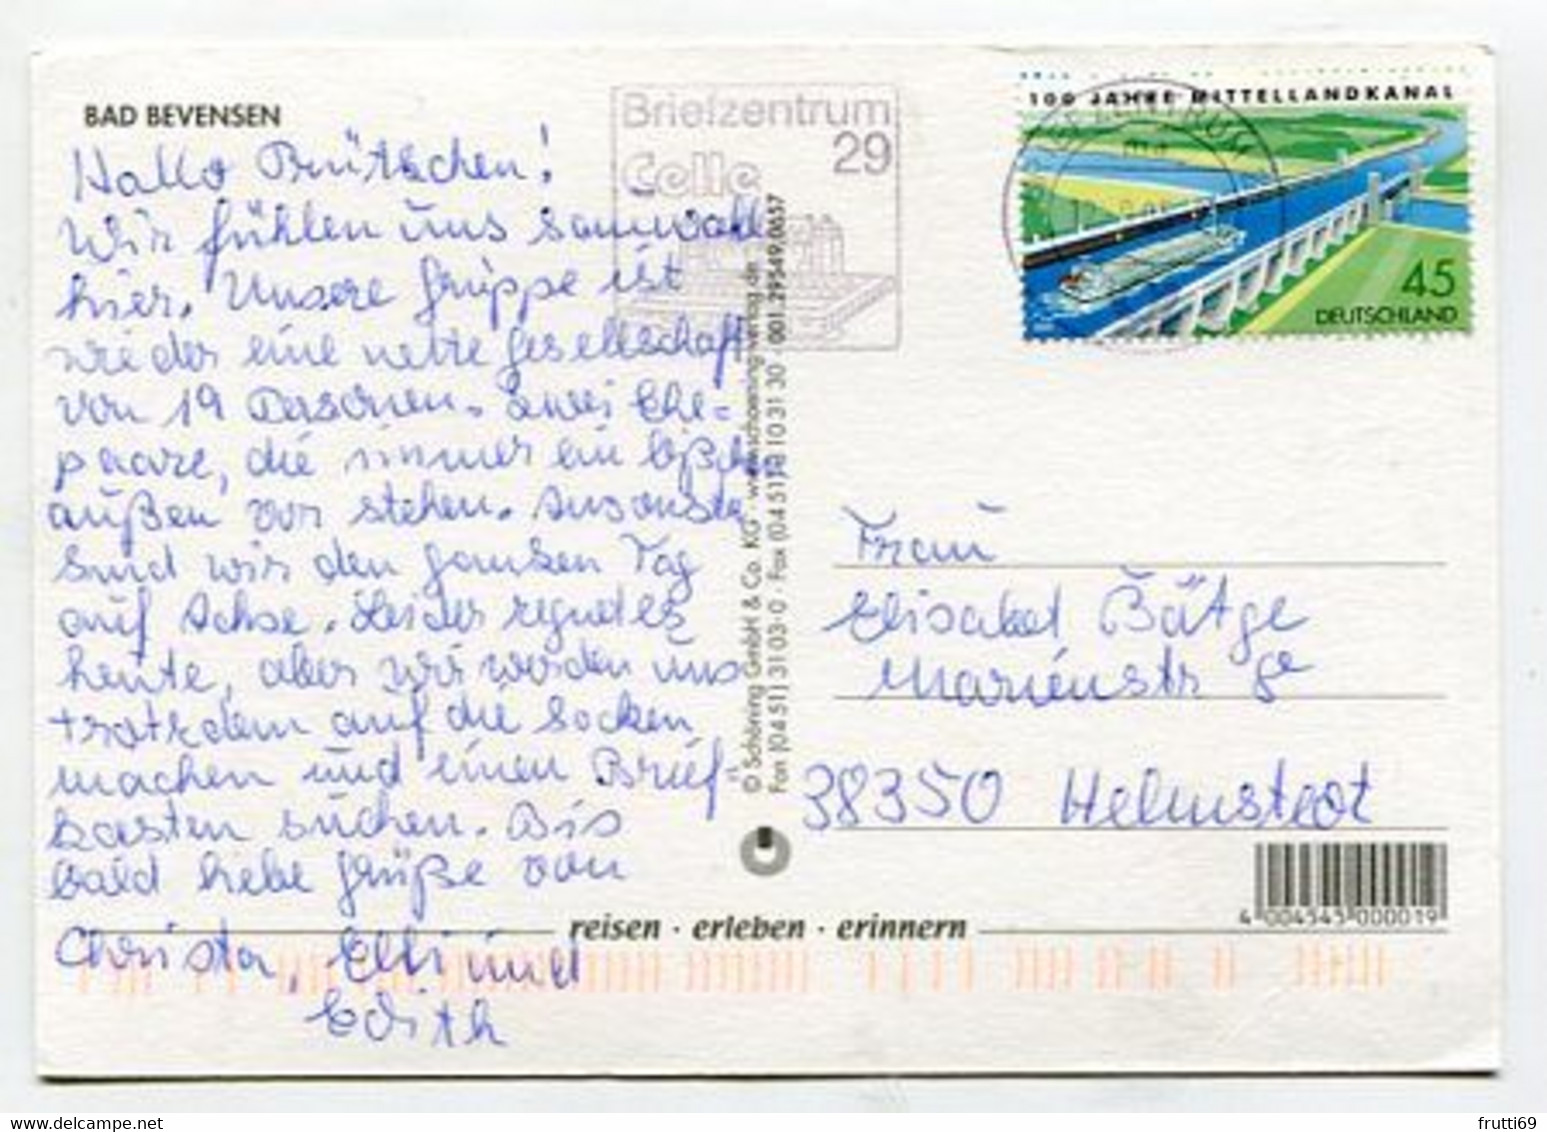 BAD BEVENSEN
Hallo
Wir fühlen uns sauwohl
hier. Unsere Gruppe ist
wieder eine nette Gesellschaft
von 19 Personen. Zwei Ehe=
paare, die immer ein bißchen
außen vor stehen. Ansonsten
sind wir den ganzen Tag
auf Achse. Leider regnet es
heute, aber wir werden uns
trotzdem auf die Socken
machen und einen Brief-
kasten suchen. Bis
bald liebe Grüße von
Christa, Elli und
Edith
Briefzentrum
29
Celle
© Schöning GmbH & Co. KG · www.schoening-verlag.de
Fon (04 51) 3 10 3-0 · Fax (04 51) 10 31 30 · 001.29549.0657
100 JAHRE MITTELLANDKANAL
45
DEUTSCHLAND
Frau
Elisabet Bätge
Marienstr 8e
38350 Helmstedt
4 004545 000019
reisen · erleben · erinnern
frutti69